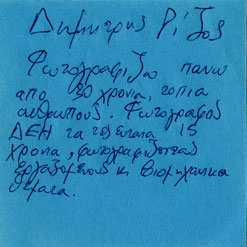 Δημητρης Ρίζος
Φωτογραφιζω πανω
απο 30 χρονια, τοπια
ανθρωπους. Φωτογραφος
ΔΕΗ τα τελευταια 15
χρονια, φωτογραφιζοντας
εργαζομενους κι βιομηχανικα
θεματα.